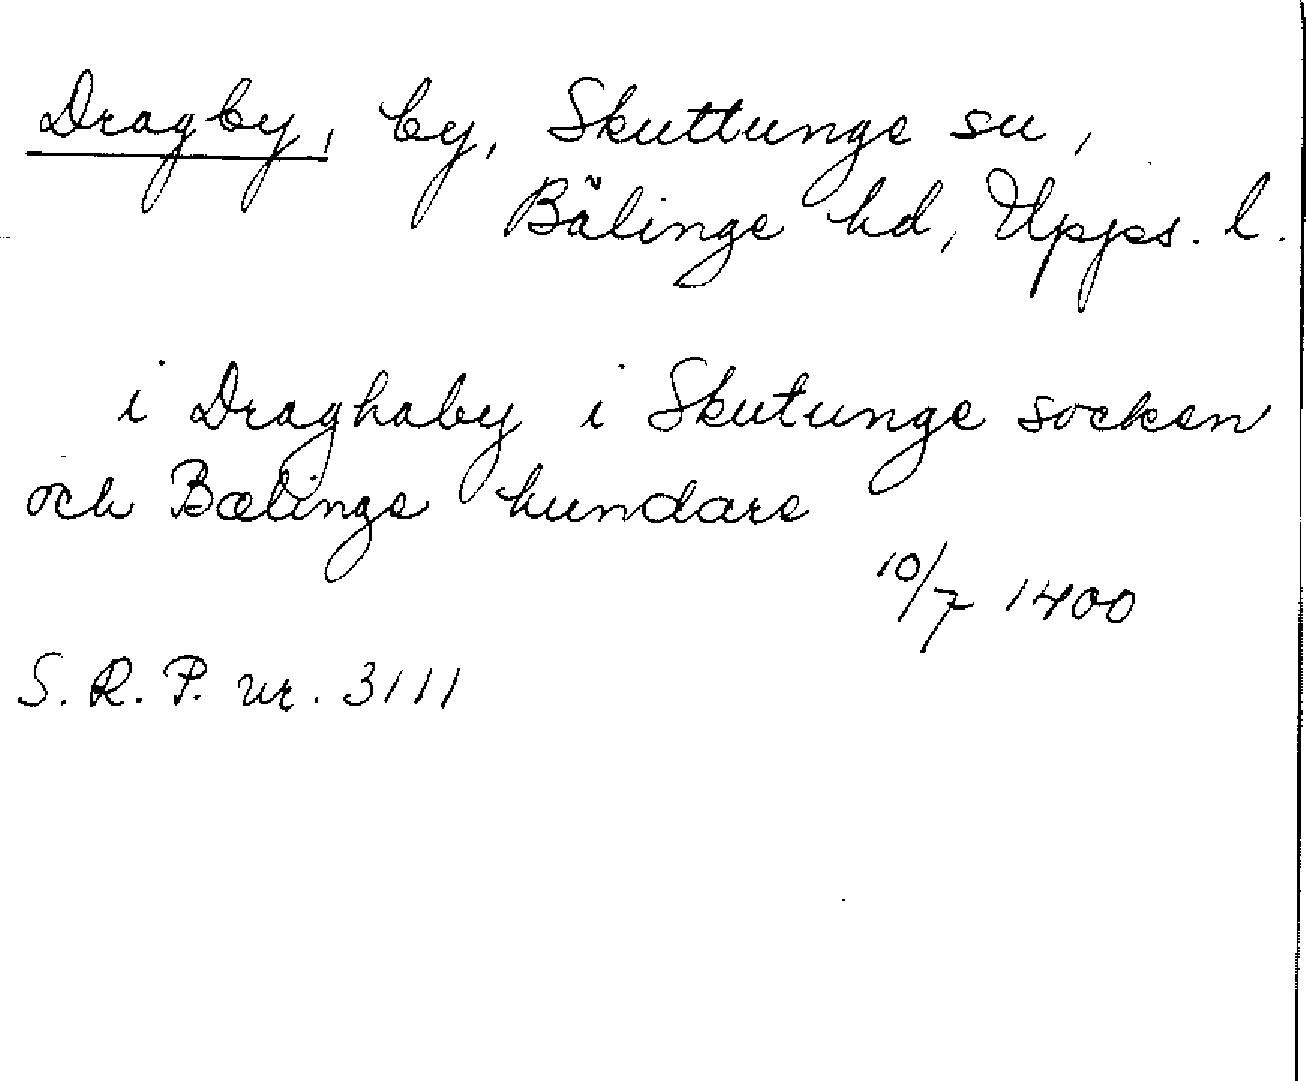 Dragby, by, Skuttunge sn,
Bälinge hd, Upps. l.
i Draghaby i Skutunge socken
och Bælinge hundare
10/7 1400
S. R. P. nr. 3111